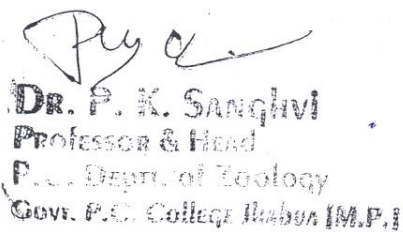 DR. P. K. SANGHVI
PROFESSOR & HEAD
P.G. DEPTT. of Zoology
Govt. P.G. College Jhabua [M.P.]